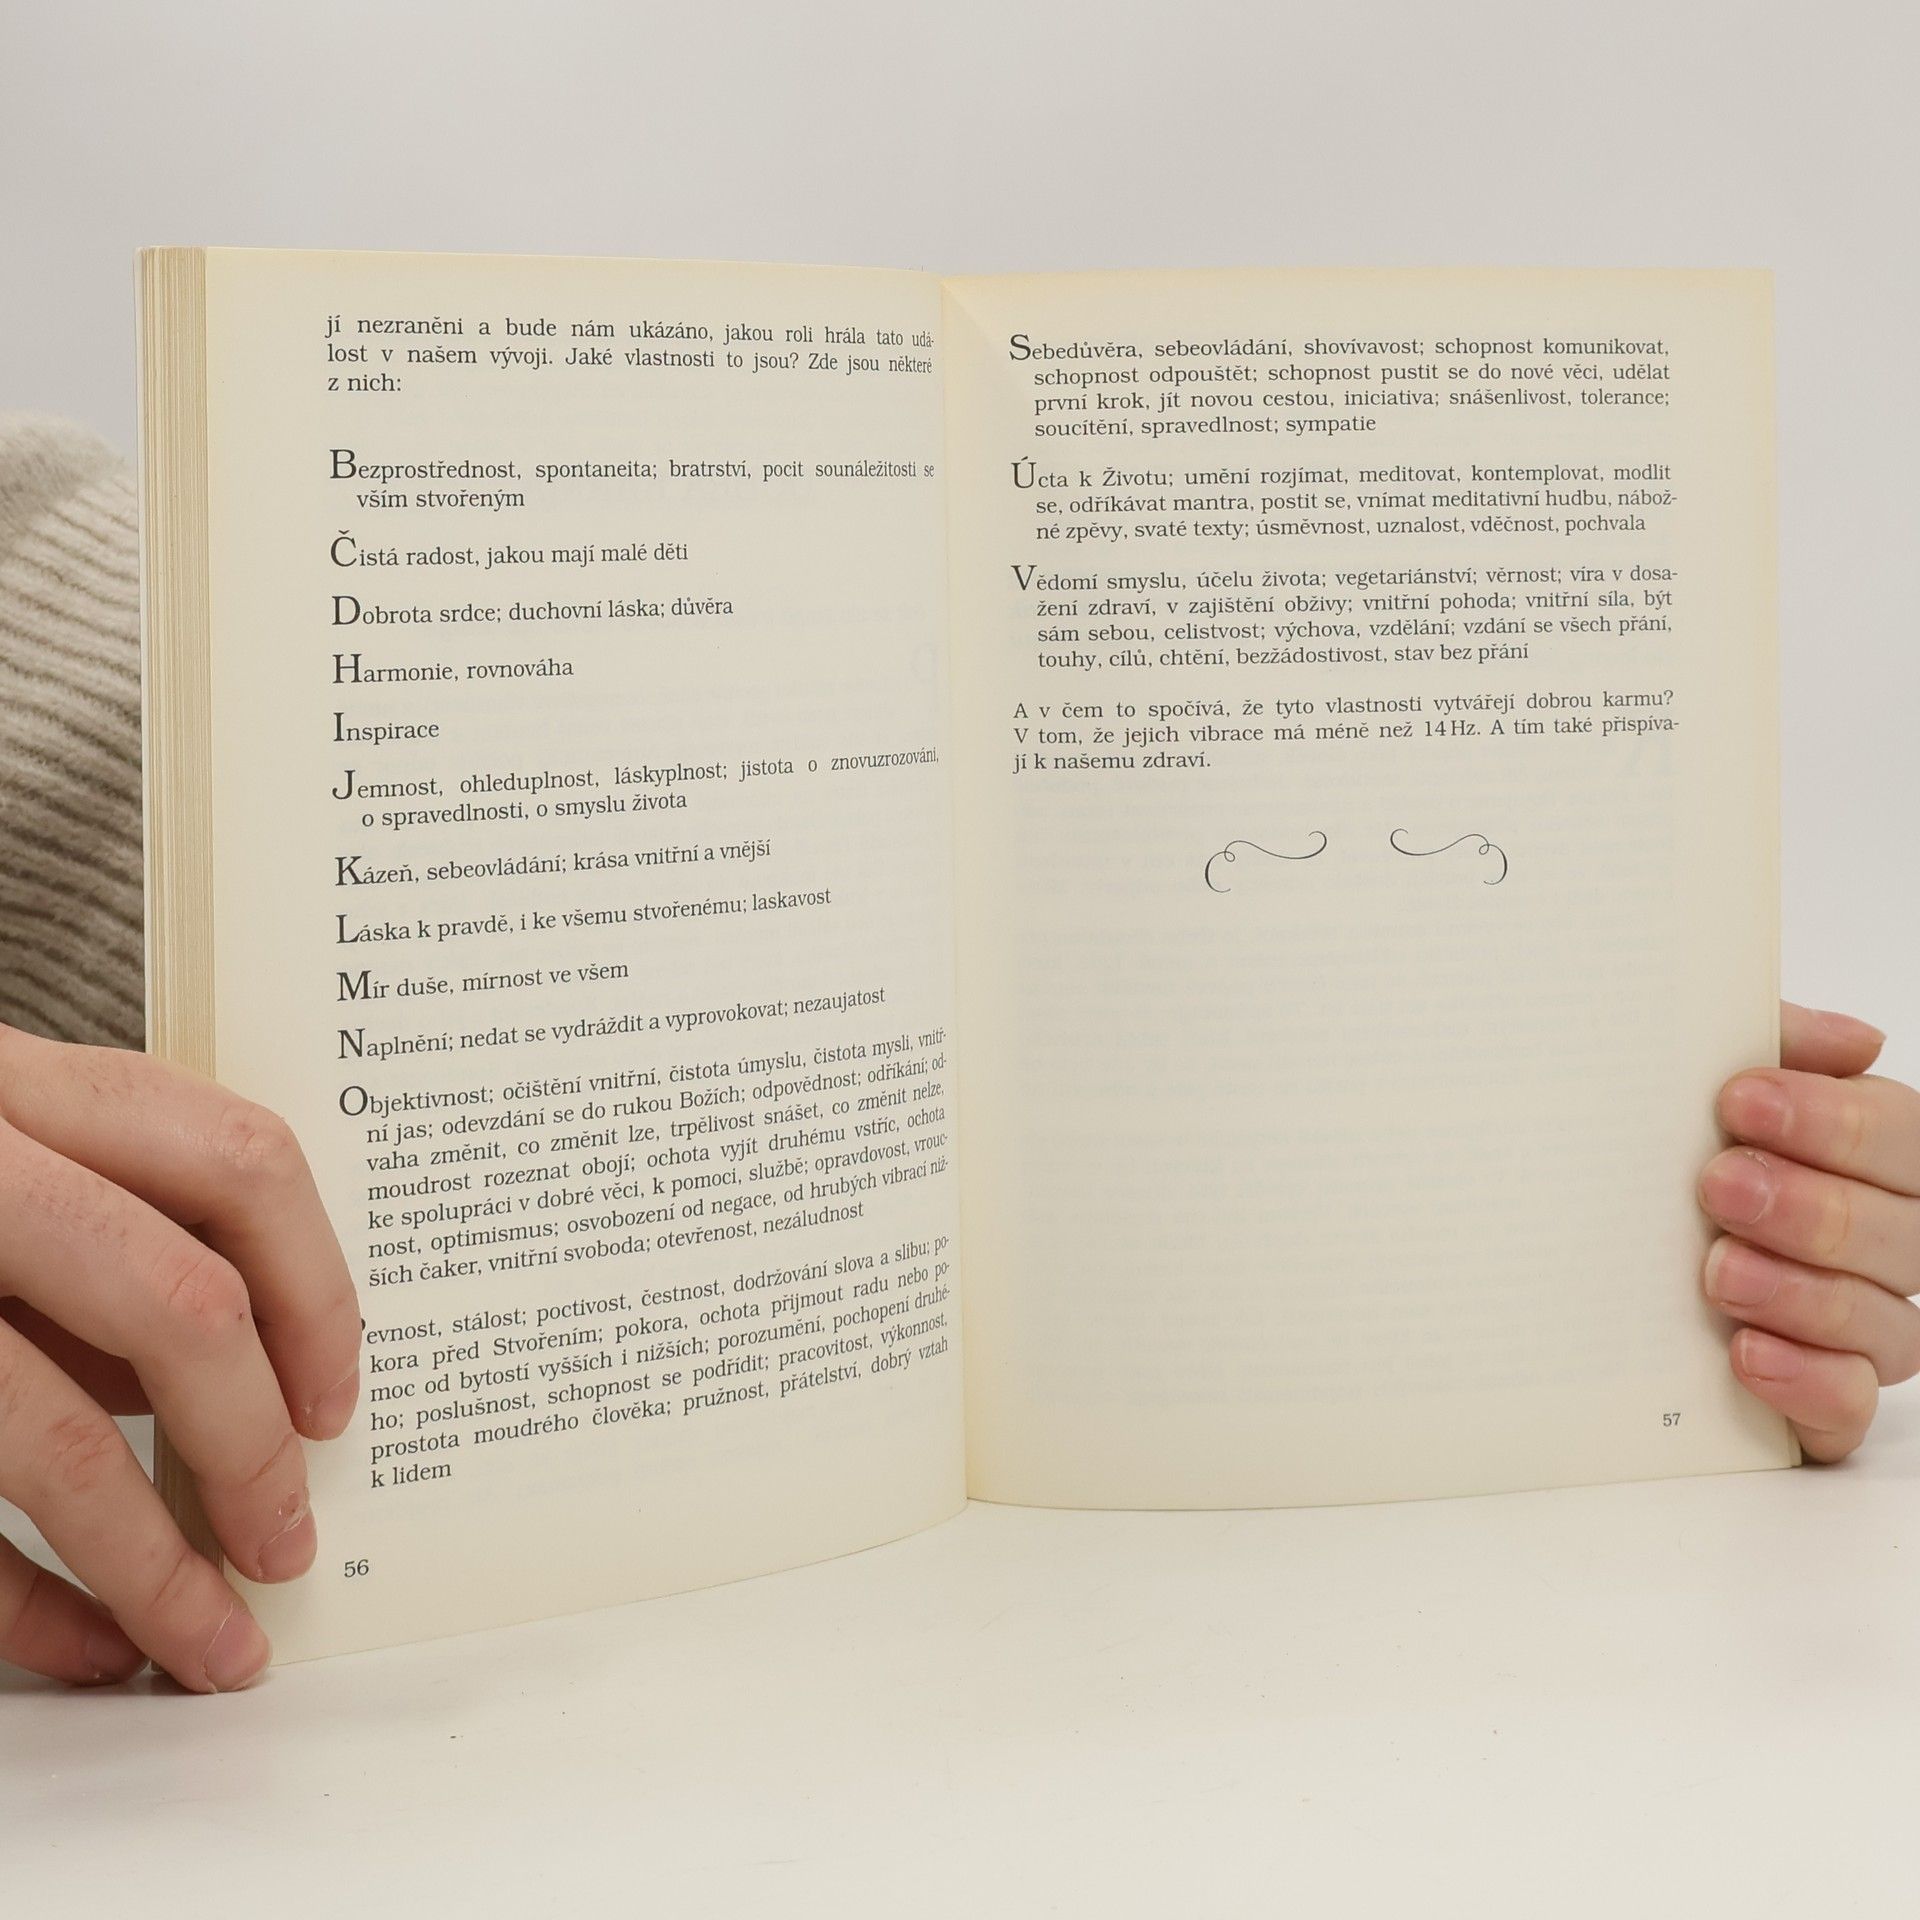 jí nezraněni a bude nám ukázáno, jakou roli hrála tato udá-
lost v našem vývoji. Jaké vlastnosti to jsou? Zde jsou některé
z nich:
Bezprostřednost, spontaneita; bratrství, pocit sounáležitosti se
vším stvořeným
Čistá radost, jakou mají malé děti
Dobrota srdce; duchovní láska; důvěra
Harmonie, rovnováha
Inspirace
Jemnost, ohleduplnost, láskyplnost; jistota o znovuzrozování,
o spravedlnosti, o smyslu života
Kázeň, sebeovládání; krása vnitřní a vnější
Láska k pravdě, i ke všemu stvořenému; laskavost
Mír duše, mírnost ve všem
Naplnění; nedat se vydráždit a vyprovokovat; nezaujatost
Objektivnost; očištění vnitřní, čistota úmyslu, čistota mysli, vnitř-
ní jas; odevzdání se do rukou Božích; odpovědnost; odříkání; od-
vaha změnit, co změnit lze, trpělivost snášet, co změnit nelze,
moudrost rozeznat obojí; ochota vyjít druhému vstříc, ochota
ke spolupráci v dobré věci, k pomoci, službě; opravdovost, vrouc-
nost, optimismus; osvobození od negace, od hrubých vibrací niž-
ších čaker, vnitřní svoboda; otevřenost, nezáludnost
Pevnost, stálost; poctivost, čestnost, dodržování slova a slibu; po-
kora před Stvořením; pokora, ochota přijmout radu nebo po-
moc od bytostí vyšších i nižších; porozumění, pochopení druhé-
ho; poslušnost, schopnost se podřídit; pracovitost, výkonnost,
prostota moudrého člověka; pružnost, přátelství, dobrý vztah
k lidem
56
Sebedůvěra, sebeovládání, shovívavost; schopnost komunikovat,
schopnost odpouštět; schopnost pustit se do nové věci, udělat
první krok, jít novou cestou, iniciativa; snášenlivost, tolerance;
soucítění, spravedlnost; sympatie
Úcta k Životu; umění rozjímat, meditovat, kontemplovat, modlit
se, odříkávat mantra, postit se, vnímat meditativní hudbu, nábož-
né zpěvy, svaté texty; úsměvnost, uznalost, vděčnost, pochvala
Vědomí smyslu, účelu života; vegetariánství; věrnost; víra v dosa-
žení zdraví, v zajištění obživy; vnitřní pohoda; vnitřní síla, být
sám sebou, celistvost; výchova, vzdělání; vzdání se všech přání,
touhy, cílů, chtění, bezžádostivost, stav bez přání
A v čem to spočívá, že tyto vlastnosti vytvářejí dobrou karmu?
V tom, že jejich vibrace má méně než 14 Hz. A tím také přispíva-
jí k našemu zdraví.
57